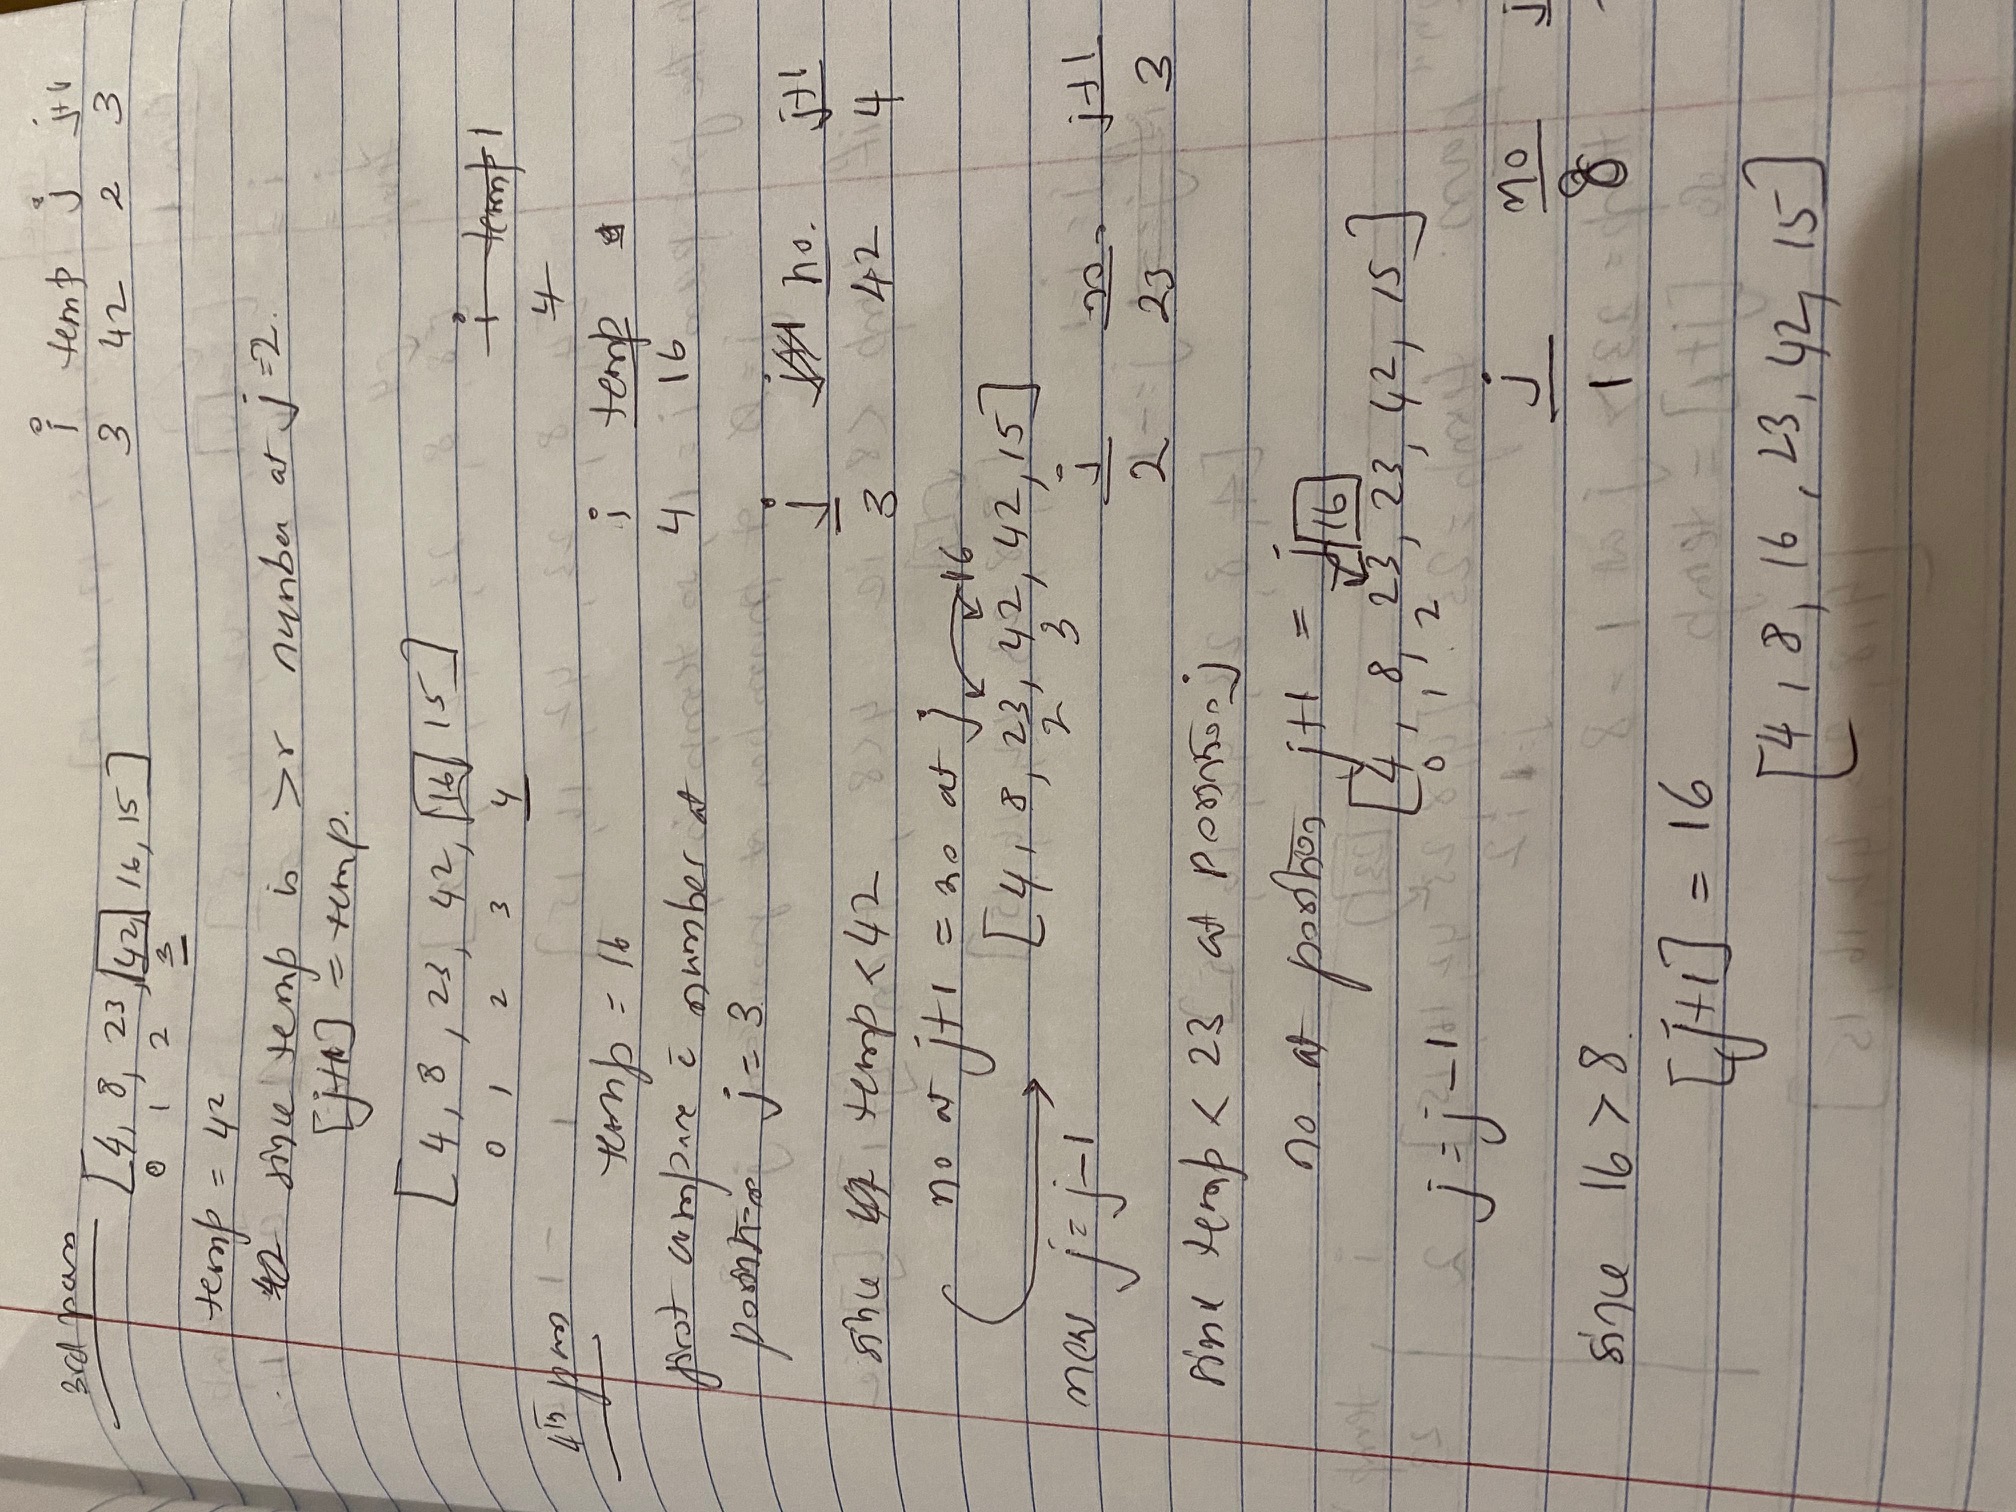 3rd pass
i temp j j+1
[4, 8, 23, 42, 16, 15]
3 42 2 3
0 1 2 3
temp = 42
since temp is >r number at j=2.
[j+1] = temp.
[4, 8, 23, 42, 16 15]
0 1 2 3 4
i temp 1
4
4th pass
temp = 16
i temp
4 16
first compare c̄ number at
position j = 3
j no. j+1
3 42 4
since temp < 42
no at j+1 = no at j
16
[4, 8, 23, 42, 42, 15]
2 3
now j = j-1
j no. j+1
2 23 3
since temp < 23 at position j
no at position j+1 = j
16
[4, 8, 23, 23, 42, 15]
0 1 2
j = j-1
j no j
1 8
since 16 > 8.
[j+1] = 16
[4, 8, 16, 23, 42, 15]